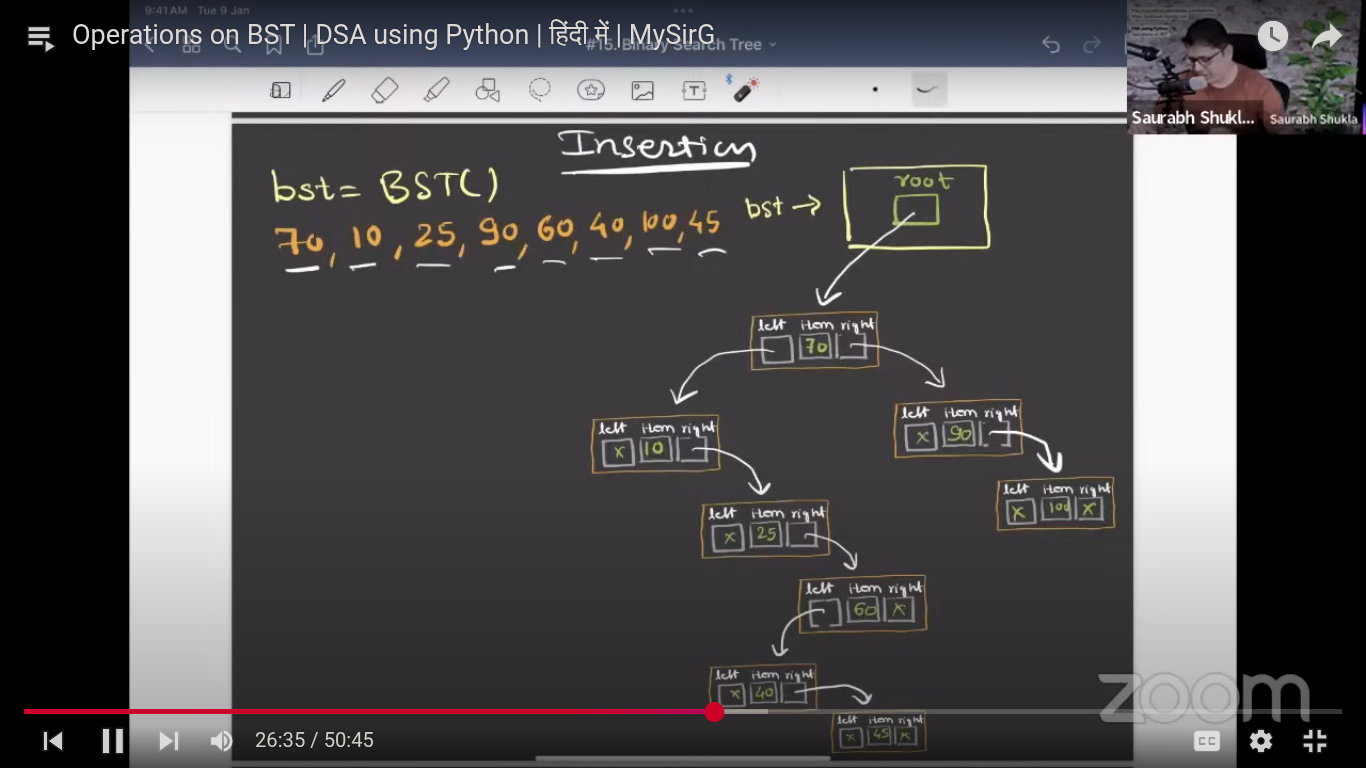 9:41 AM Tue 9 Jan
Operations on BST | DSA using Python | हिंदी में | MySirG
#15. Binary Search Tree
Saurabh Shukl...
Saurabh Shukla
Insertion
bst = BST()
70, 10, 25, 90, 60, 40, 100, 45
bst →
root
left item right
70
left item right
x 10
left item right
x 90
left item right
x 100 x
left item right
x 25
left item right
60 x
left item right
x 40
left item right
x 45 x
zoom
26:35 / 50:45
CC